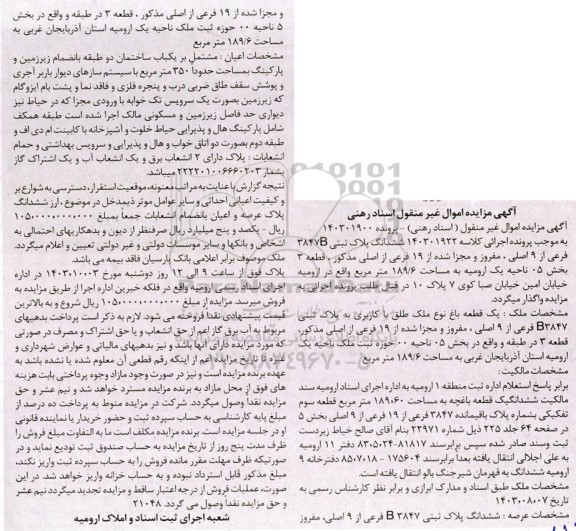 آگهی مزایده اموال غیر منقول اسناد رهنی
آگهی مزایده اموال غیر منقول ( اسناد رهنی) - پرونده ۱۴۰۳۰۱۹۰۰
به موجب پرونده اجرائی کلاسه ۱۴۰۳۰۱۹۲۲ ششدانگ پلاک ثبتی ۳۸۴۷B
فرعی از ۹ اصلی ، مفروز و مجزا شده از ۱۹ فرعی از اصلی مذکور ، قطعه ۳
بخش ۰۵ ناحیه یک ارومیه به مساحت ۱۸۹/۶ متر مربع واقع در ارومیه
خیابان امین خیابان صبا کوی ۷ پلاک ۱۰ در قبال طلب پرونده اجرایی به
مزایده واگذار میگردد.
مشخصات ملک : یک قطعه باغ نوع ملک طلق با کاربری به پلاک ثبتی
B۳۸۴۷ فرعی از ۹ اصلی ، مفروز و مجزا شده از ۱۹ فرعی از اصلی مذکور،
قطعه ۳ در طبقه و واقع در بخش ۰۵ ناحیه ۰۰ حوزه ثبت ملک ناحیه یک
ارومیه استان آذربایجان غربی به مساحت ۱۸۹/۶ متر مربع
مشخصات مالکیت:
برابر پاسخ استعلام اداره ثبت منطقه ۱ ارومیه به اداره اجرای اسناد ارومیه سند
مالکیت ششدانگیک قطعه باغچه به مساحت ۱۸۹،۶۰ مترمربع قطعه سوم
تفکیکی بشماره پلاک باقیمانده ۳۸۴۷ فرعی از ۱۹ فرعی از ۹ اصلی بخش ۵
در صفحه ۶۴ جلد ۲۲۵ ذیل شماره ۲۲۹۷۱ بنام آقای صالح خیاط زبردست
ثبت وسند صادر شده سپس برابرسند ۸۱۸۱۷-۸۳،۵،۲۴ دفتر ۱۱ ارومیه
به علی اجلالی انتقال یافته بعداً برابرسند ۱۷۵۶۰۴ - ۸۵،۷،۱۸ دفترخانه ۹
ارومیه ششدانگ به قهرمان شیرجنگ بالو انتقال یافته است.
مشخصات ملک طبق اسناد و مدارک ابرازی و برابر نظر کارشناس رسمی به
تاریخ ۱۴۰۳،۰۸،۰۷
مشخصات عرصه : ششدانگ پلاک ثبتی B ۳۸۴۷ فرعی از ۹ اصلی، مفروز
و مجزا شده از ۱۹ فرعی از اصلی مذکور ، قطعه ۳ در طبقه و واقع در بخش
۵ ناحیه ۰۰ حوزه ثبت ملک ناحیه یک ارومیه استان آذربایجان غربی به
مساحت ۱۸۹/۶ متر مربع
مشخصات اعیان : مشتمل بر یکباب ساختمان دو طبقه بانضمام زیرزمین و
پارکینگ بمساحت حدودا ۳۵۰ متر مربع با سیستم سازهای دیوار باربر آجری
و پوشش سقف طاق ضربی درب و پنجره فلزی و فاقد نما و پشت بام ایزوگام
که زیرزمین بصورت یک سرویس تک خوابه با ورودی مجزا که در حیاط نیز
دیواری حد فاصل زیرزمین و مسکونی مالک اجرا شده است طبقه همکف
شامل پارکینگ هال و پذیرایی حیاط خلوت و آشپزخانه با کابینت ام دی اف و
طبقه دوم بصورت دو اتاق خواب و هال و پذیرایی و سرویس بهداشتی و حمام
انشعابات : پلاک دارای ۲ انشعاب برق و یک انشعاب آب و یک اشتراک گاز
بشمار ۲۲۲۲۰۱۰۰۶۶۶۰۲۰۳ میباشد.
نتیجه گزارش با عنایت به مراتب معنونه، موقعیت استقرار، دسترسی به شوارع بر
و کیفیت اعیانی احداثی و سایر عوامل موثر ذیمدخل در موضوع ، ارز ششدانگ
پلاک عرصه و اعیان بانضمام انشعابات جمعاً بمبلغ ۱۰۵،۰۰۰،۰۰۰،۰۰۰
ریال - یکصد و پنج میلیارد ریال صرفنظر از دیون و بدهکاریهای احتمالی به
اشخاص و بانکها و سایر موسسات دولتی و غیر دولتی تعیین و اعلام میگردد.
ملک موصوف برابر اعلامی بانک پارسیان فاقد بیمه می باشد.
پلاک فوق از ساعت ۹ الی ۱۲ روز دوشنبه مورخ ۱۴۰۳،۱۰،۰۳ در اداره
واقع در فلکه خیرین اداره اجرا از طریق مزایده به
فروش میرسد. مزایده از مبلغ ۱۰۵،۰۰۰،۰۰۰،۰۰۰ ریال شروع و به بالاترین
قیمت پیشنهادی نقدا فروخته می شود. لازم به ذکر است پرداخت بدهیهای
مربوط به آب برق گاز اعم از حق انشعاب و یا حق اشتراک و مصرف در صورتی
که مورد مزایده دارای آنها باشد و نیز بدهیهای مالیاتی و عوارض شهرداری و
غیره تا تاریخ مزایده اعم از اینکه رقم قطعی آن معلوم شده یا نشده باشد به
عهده برنده مزایده است و نیز در صورت وجود مازاد وجوه پرداختی بابت هزینه
های فوق از محل مازاد به برنده مزایده مسترد خواهد شد و نیم عشر و حق
مزایده نقدا وصول میگردد. شرکت در مزایده منوط به پرداخت ده درصد از
مبلغ پایه کارشناسی به حساب سپرده ثبت و حضور خریدار یا نماینده قانونی
او در جلسه مزایده است. برنده مزایده مکلف است ما به التفاوت مبلغ فروش را
ظرف مدت پنج روز از تاریخ مزایده به حساب صندوق ثبت تودیع نماید و در
صورتیکه ظرف مهلت مقرر مانده فروش را به حساب سپرده ثبت واریز نکند،
مبلغ مذکور قابل استرداد نبوده و به حساب خزانه واریز خواهد شد. در این
صورت، عملیات فروش از درجه اعتبار ساقط و مزایده تجدید میگردد نیم عشر
و حق مزایده نقدا وصول می گردد. ۲۱۰۴۸
شعبه اجرای ثبت اسناد و املاک ارومیه